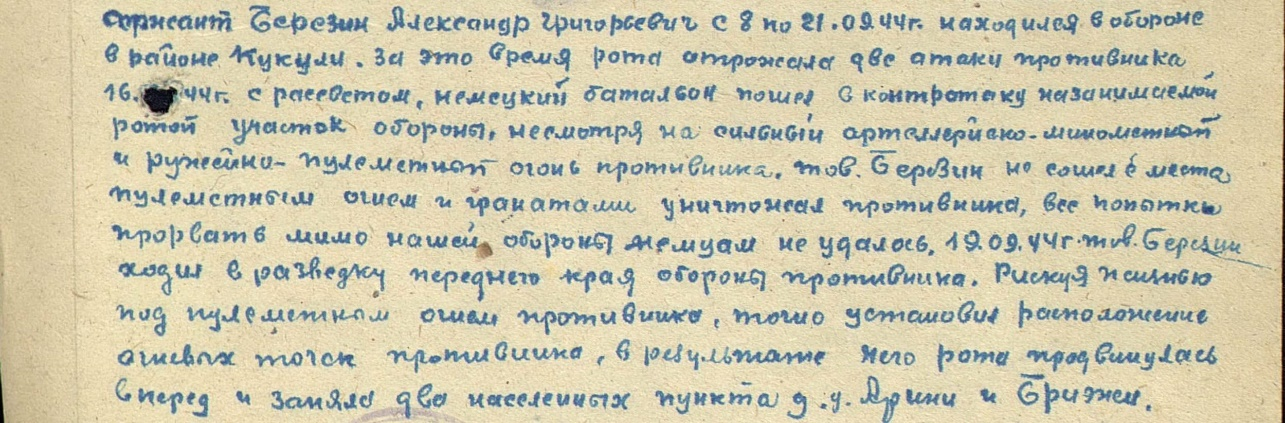 сержант Березин Александр Григорьевич с 8 по 21.09.44г. находился в обороне
в районе Кукули. За это время рота отрожала две атаки противника
16. 44г. с рассветом, немецкий батальон пошел в контротаку на занимаемой
ротой участок обороны, несмотря на сильный артеллерийско-минометной
и ружейно-пулеметной огонь противника. тов. Березин не сошел с места
пулеметным огнем и гранатами уничтожал противника, все попытки
прорвать мимо нашей обороны немцам не удалось. 19.09.44г. тов. Березин
ходил в разведку переднего края обороны противника. Рискуя жизнью
под пулеметным огнем противника, точно установил расположение
огневых точек противника, в результате чего рота продвинулась
вперед и заняла два населенных пункта д.д. Арини и Брижи.